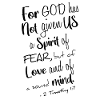 For GOD has
Not given US
a Spirit of
FEAR, but of
Love and of
a sound mind
2 Timothy 1:7